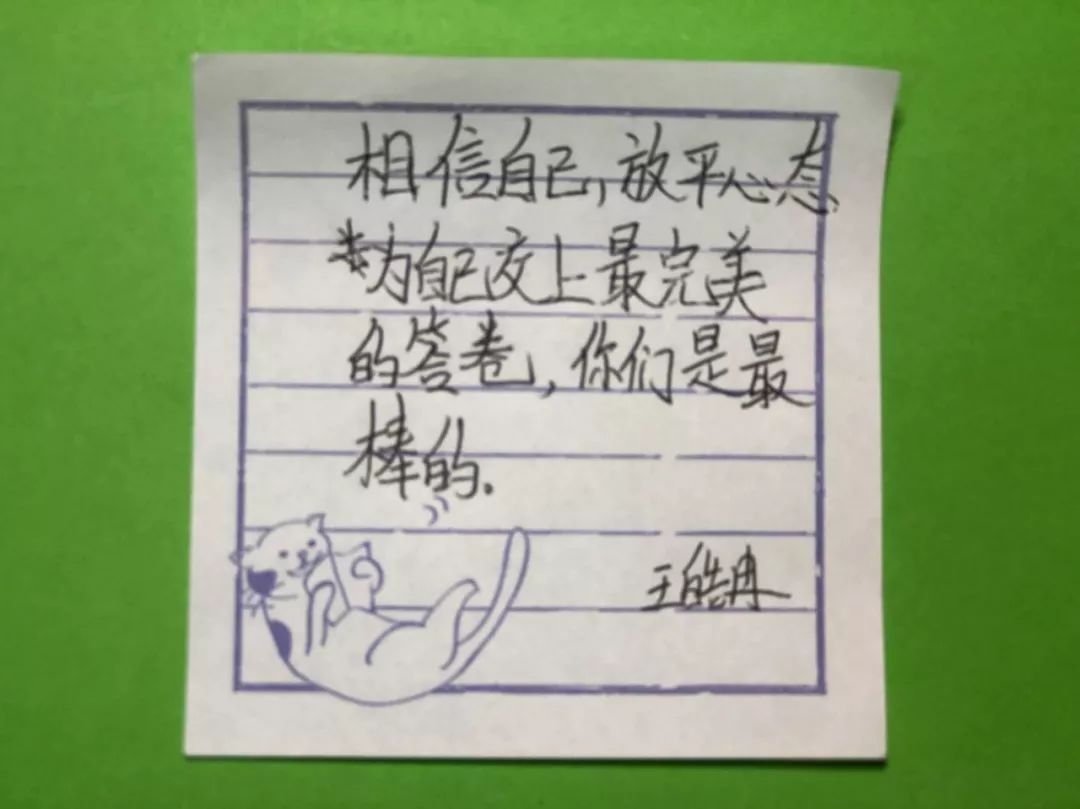 相信自己,放平心态
为自己交上最完美
的答卷,你们是最
棒的.
王皓冉